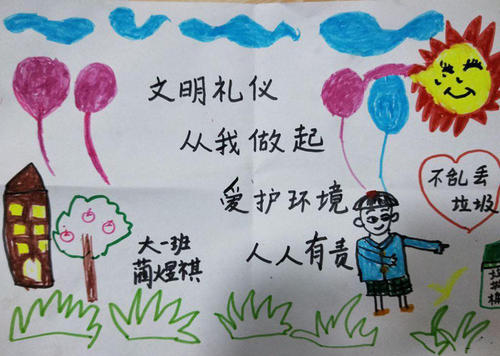 文明礼仪
从我做起
爱护环境
人人有责
不乱丢
垃圾
大一班
蔺煜祺